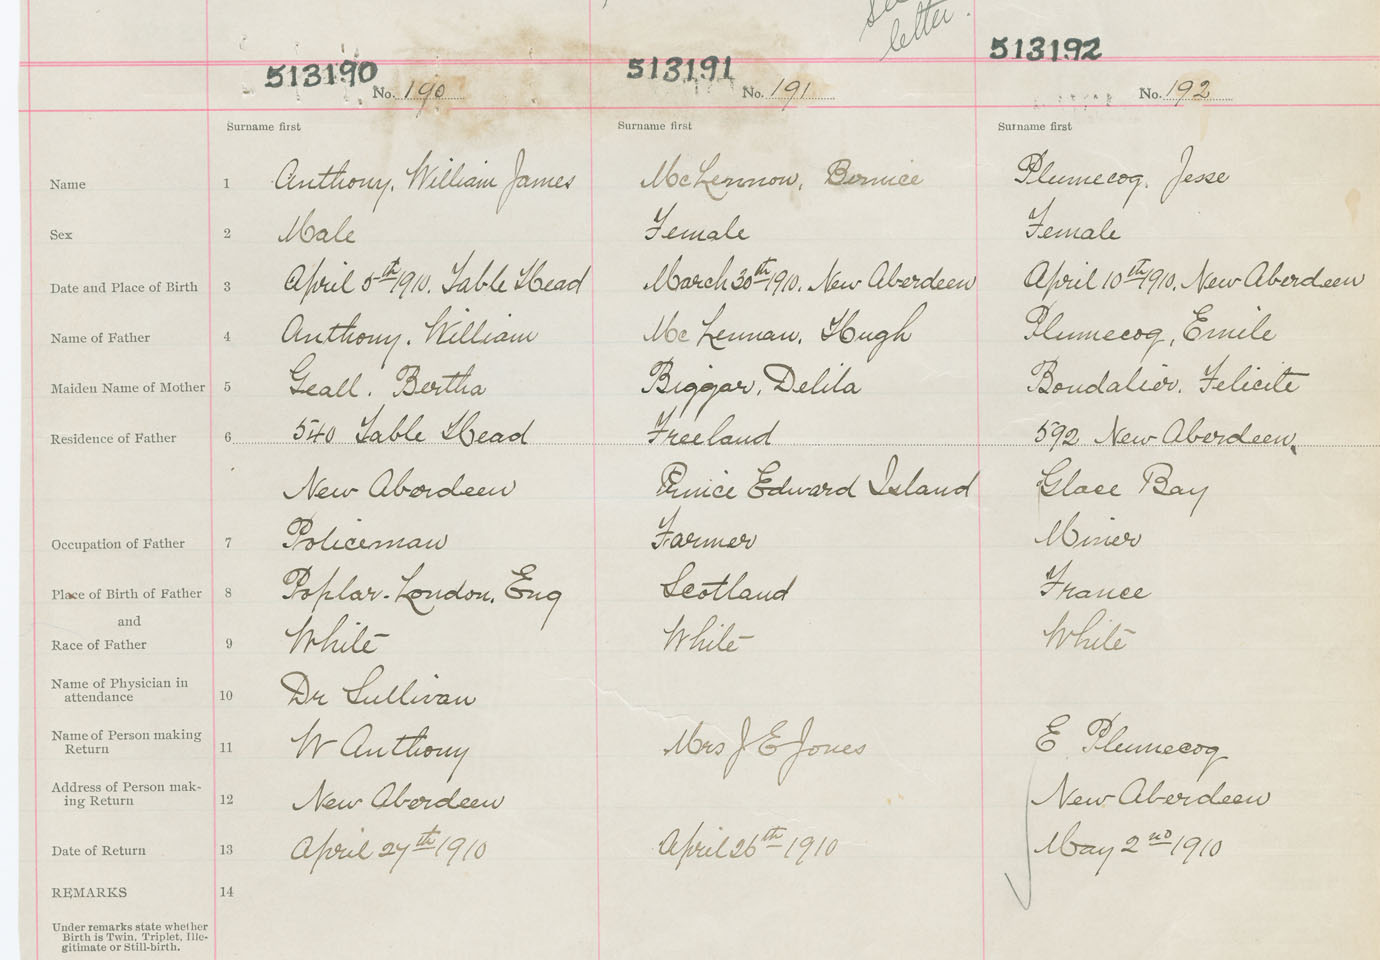 letter.
513190 513191 513192
No. 190 No. 191 No. 192
Surname first Surname first Surname first
Name 1 Anthony, William James McLennon, Bernice Plumecoq, Jesse
Sex 2 Male Female Female
Date and Place of Birth 3 April 5th 1910. Table Head March 30th 1910. New Aberdeen April 10th 1910. New Aberdeen
Name of Father 4 Anthony. William McLennan, Hugh Plumecoq, Emile
Maiden Name of Mother 5 Geall. Bertha Biggar, Delila Boudalier. Felicite
Residence of Father 6 540 Table Head Freeland 592 New Aberdeen,
New Aberdeen Prince Edward Island Glace Bay
Occupation of Father 7 Policeman Farmer Miner
Place of Birth of Father 8 Poplar. London, Eng Scotland France
and
Race of Father 9 White White White
Name of Physician in
attendance 10 Dr Sullivan
Name of Person making
Return 11 W Anthony Mrs J E Jones E. Plumecoq
Address of Person mak-
ing Return 12 New Aberdeen New Aberdeen
Date of Return 13 April 27th 1910 April 26th 1910 May 2nd 1910
REMARKS 14
Under remarks state whether
Birth is Twin, Triplet, Ille-
gitimate or Still-birth.